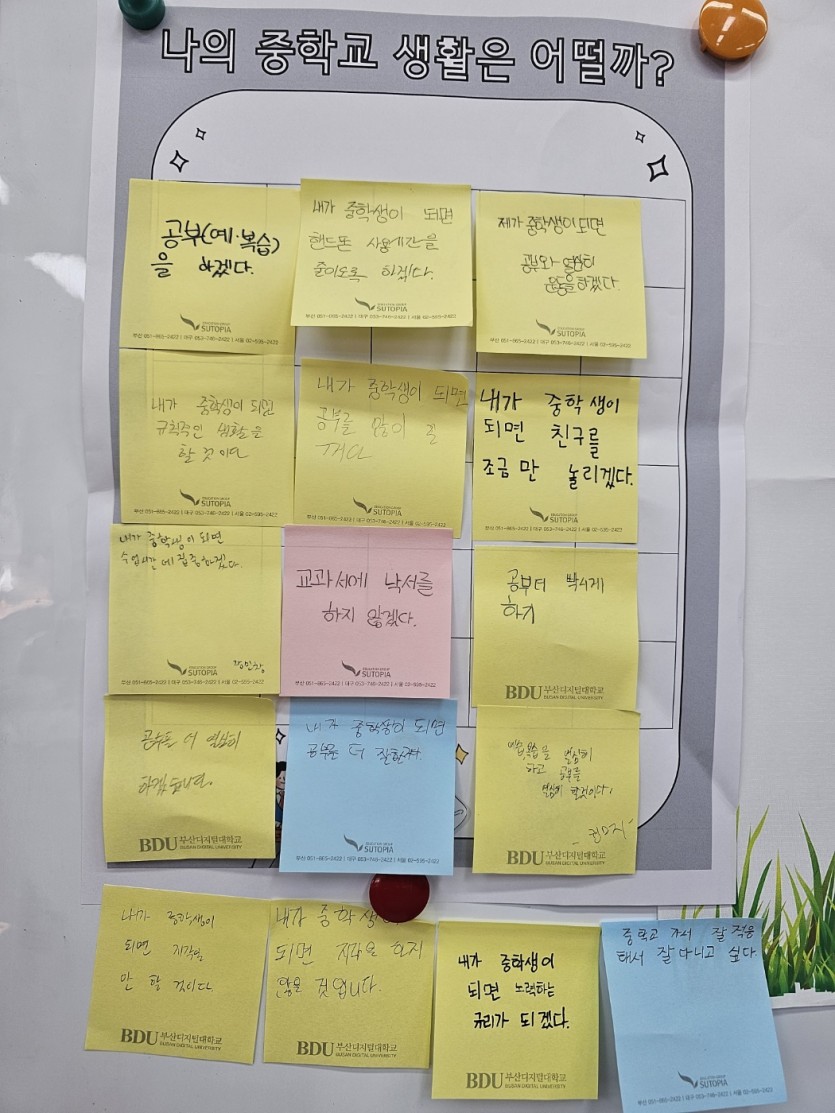 나의 중학교 생활은 어떨까?
공부(예·복습)
을 하겠다.
EDUCATION GROUP
SUTOPIA
부산 051-865-2422 | 대구 053-746-2422 | 서울 02-595-2422
내가 중학생이 되면
핸드폰 사용시간을
줄이도록 하겠다.
EDUCATION GROUP
SUTOPIA
부산 051-865-2422 | 대구 053-746-2422 | 서울 02-595-2422
제가 중학생이 되면
공부와 열심히
운동을 하겠다.
EDUCATION GROUP
SUTOPIA
부산 051-865-2422 | 대구 053-746-2422 | 서울 02-595-2422
내가 중학생이 되면
규칙적인 생활을
할 것 이다
EDUCATION GROUP
SUTOPIA
부산 051-865-2422 | 대구 053-746-2422 | 서울 02-595-2422
내가 중학생이 되면
공부를 많이 할
꺼다
EDUCATION GROUP
SUTOPIA
부산 051-865-2422 | 대구 053-746-2422 | 서울 02-595-2422
내가 중학생이
되면 친구를
조금만 놀리겠다.
EDUCATION GROUP
SUTOPIA
부산 051-865-2422 | 대구 053-746-2422 | 서울 02-595-2422
내가 중학생이 되면
수업시간에 집중하겠다.
EDUCATION GROUP
SUTOPIA
부산 051-865-2422 | 대구 053-746-2422 | 서울 02-595-2422
교과서에 낙서를
하지 않겠다.
EDUCATION GROUP
SUTOPIA
부산 051-865-2422 | 대구 053-746-2422 | 서울 02-595-2422
공부더 빡시게
하기
BDU 부산디지털대학교
BUSAN DIGITAL UNIVERSITY
공부를 더 열심히
하겠습니다.
BDU 부산디지털대학교
BUSAN DIGITAL UNIVERSITY
내가 중학생이 되면
공부를 더 잘한다.
EDUCATION GROUP
SUTOPIA
부산 051-865-2422 | 대구 053-746-2422 | 서울 02-595-2422
예습,복습을 열심히
하고 공부를
열심히 할것이다!
BDU 부산디지털대학교
BUSAN DIGITAL UNIVERSITY
내가 중학생이
되면 지각을
안 할 것이다.
BDU 부산디지털대학교
BUSAN DIGITAL UNIVERSITY
내가 중학생
되면 지각을 하지
않을 것입니다.
BDU 부산디지털대학교
BUSAN DIGITAL UNIVERSITY
내가 중학생이
되면 노력하는
규리가 되겠다.
BDU 부산디지털대학교
BUSAN DIGITAL UNIVERSITY
중학교 가서 잘 적응
해서 잘 다니고 싶다.
EDUCATION GROUP
SUTOPIA
부산 051-865-2422 | 대구 053-746-2422 | 서울 02-595-2422